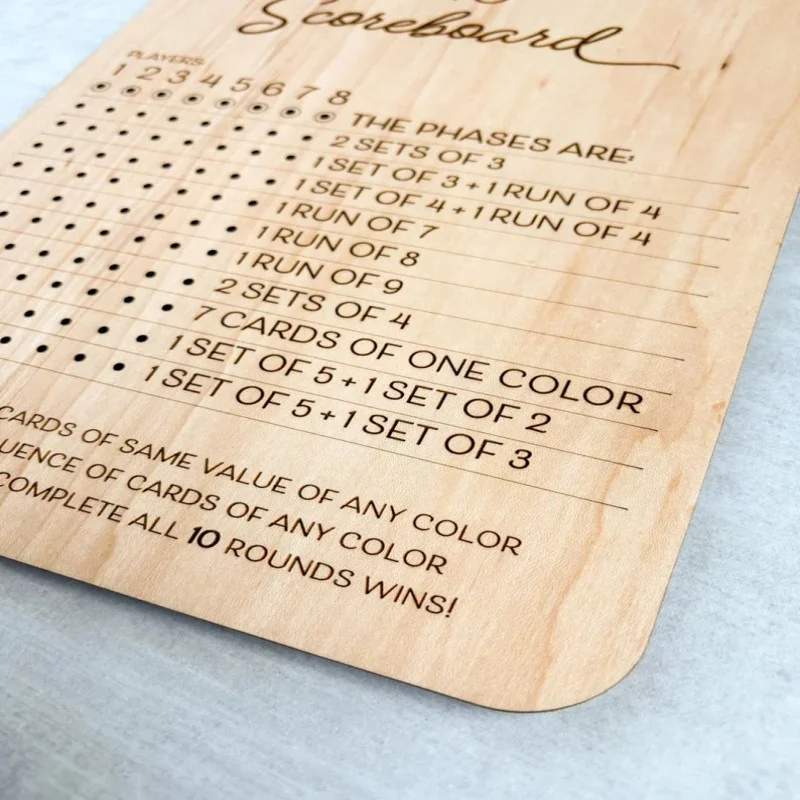 Scoreboard
PLAYERS:
1 2 3 4 5 6 7 8
THE PHASES ARE:
2 SETS OF 3
1 SET OF 3 + 1 RUN OF 4
1 SET OF 4 + 1 RUN OF 4
1 RUN OF 7
1 RUN OF 8
1 RUN OF 9
2 SETS OF 4
7 CARDS OF ONE COLOR
1 SET OF 5 + 1 SET OF 2
1 SET OF 5 + 1 SET OF 3
CARDS OF SAME VALUE OF ANY COLOR
UENCE OF CARDS OF ANY COLOR
COMPLETE ALL 10 ROUNDS WINS!